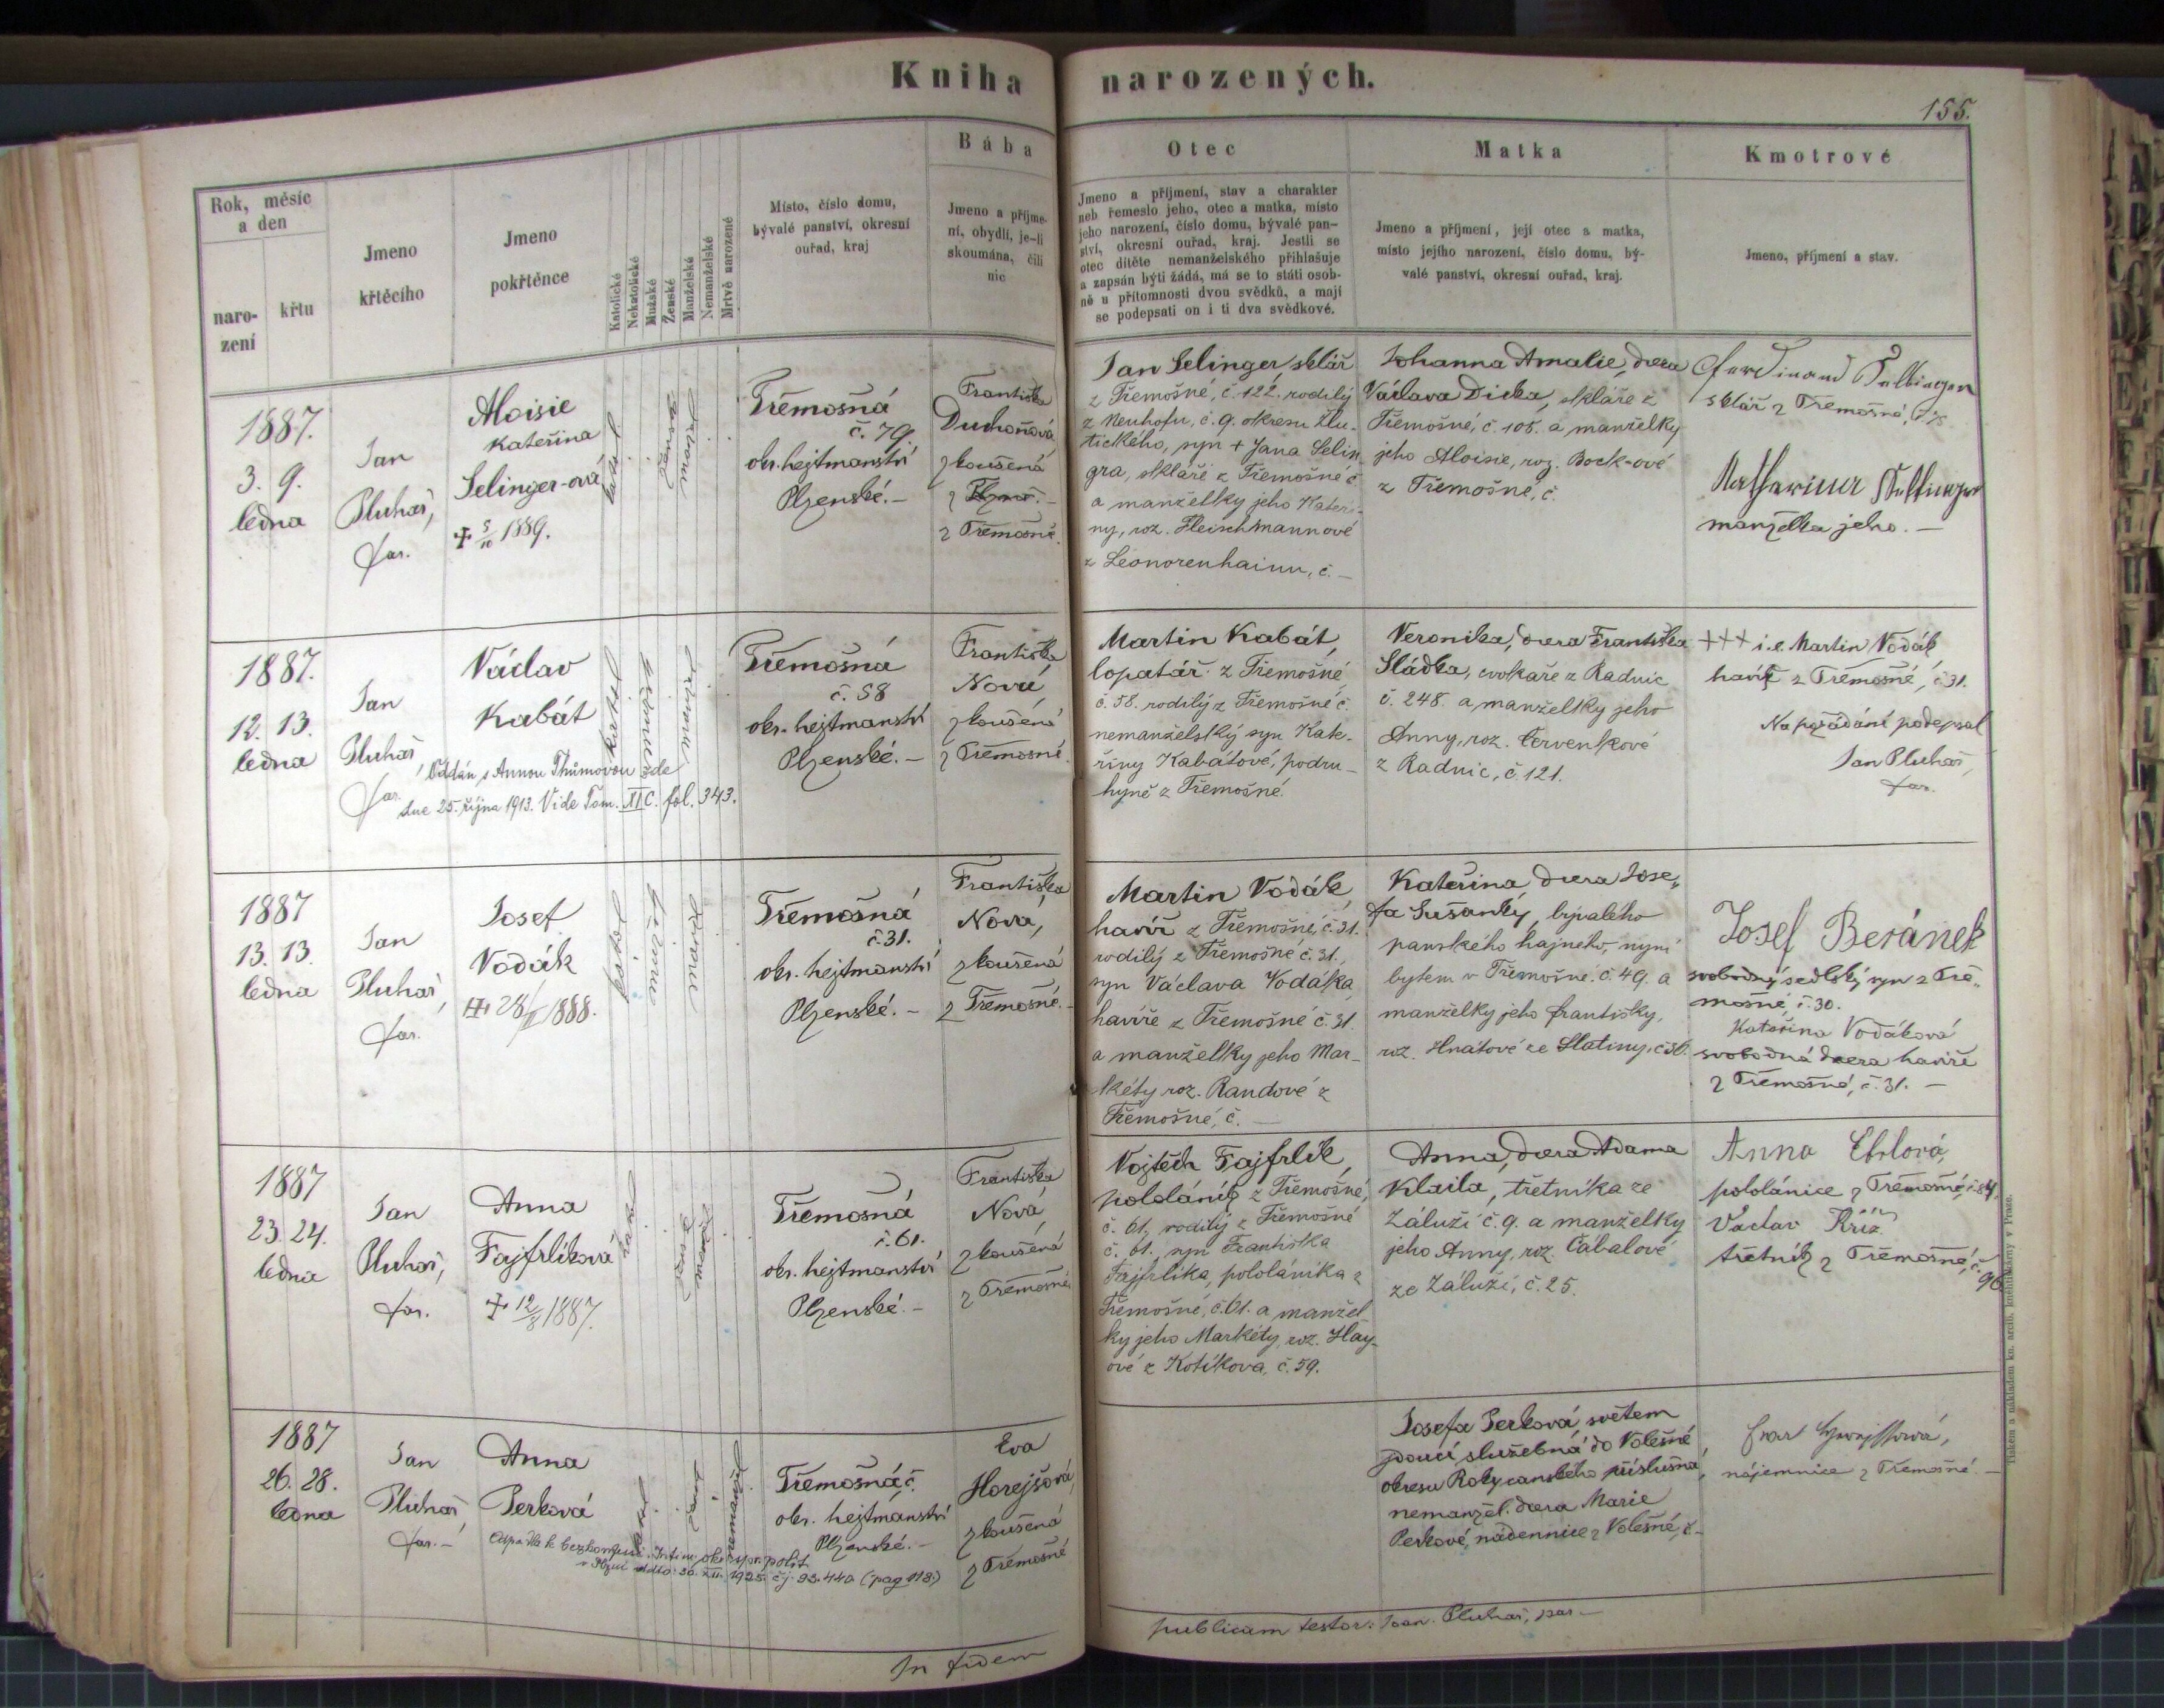 Kniha narozených.
155.
Rok, měsíc
a den
naro-
zení
křtu
Jmeno
křtěcího
Jmeno
pokřtěnce
Katolické
Nekatolické
Mužské
Ženské
Manželské
Nemanželské
Mrtvě narozené
Místo, číslo domu,
bývalé panství, okresní
ouřad, kraj
Bába
Jmeno a příjme-
ní, obydlí, je-li
skoumána, čili
nic
Otec
Jmeno a příjmení, stav a charakter
neb řemeslo jeho, otec a matka, místo
jeho narození, číslo domu, bývalé pan-
ství, okresní ouřad, kraj. Jestli se
otec dítěte nemanželského přihlašuje
a zapsán býti žádá, má se to státi osob-
ně u přítomnosti dvou svědků, a mají
se podepsati on i ti dva svědkové.
Matka
Jmeno a příjmení, její otec a matka,
místo jejího narození, číslo domu, bý-
valé panství, okresní ouřad, kraj.
Kmotrové
Jmeno, příjmení a stav.
1887.
3. 9.
ledna
Jan
Pluhař,
far.
Aloisie
Kateřina
Selinger-ová
+ 5/10 1889.
Třemošná
č. 79.
okr. hejtmanství
Plzenské.-
Františka
Duchoňová
zkoušená
z Třemošné.
Jan Selinger, sklář
z Třemošné, č. 122. rodilý
z Neuhofu, č. 9. okresu Žlu-
tického, syn + Jana Selin-
gra, skláře z Třemošné č.
a manželky jeho Kateři-
ny, roz. Fleischmannové
z Leonorenhainu, č. -
Johanna Amalie, dcera
Václava Dicka, skláře z
Třemošné, č. 108. a manželky
jeho Aloisie, roz. Bock-ové
z Třemošné, č.
Ferdinand
sklář z Třemošné
Katharina
manželka jeho. -
1887.
12. 13.
ledna
Jan
Pluhař,
far.
Václav
Kabát
Oddán s Annou Thůmovou zde
dne 25. října 1913. Vide Tom. XI C. fol. 343.
Třemošná
č. 58
okr. hejtmanství
Plzenské. -
Františka
Nová
zkoušená
z Třemošné.
Martin Kabát,
lopatář z Třemošné
č. 58. rodilý z Třemošné č.
nemanželský syn Kate-
řiny Kabátové, podru-
hyně z Třemošné.
Veronika, dcera Františka
Sládka, cvokaře z Radnic
č. 248. a manželky jeho
Anny, roz. Červenkové
z Radnic, č. 121.
+++ i.e. Martin Vodák
havíř z Třemošné, č. 31.
Na požádání podepsal
Jan Pluhař,
far.
1887
13. 13.
ledna
Jan
Pluhař,
far.
Josef
Vodák
1888.
Třemošná
č. 31.
okr. hejtmanství
Plzenské. -
Františka
Nová,
zkoušená
z Třemošné. -
Martin Vodák,
havíř z Třemošné, č. 31.
rodilý z Třemošné č. 31.,
syn Václava Vodáka,
havíře z Třemošné č. 31.
a manželky jeho Mar-
kéty roz. Randové z
Třemošné, č. -
Kateřina, dcera Jose-
fa Sušanky, bývalého
panského hajného, nyní
bytem v Třemošné. č. 49. a
manželky jeho Františky,
roz. Hnátové ze Slatiny, č. 36.
Josef Beránek
svobodný sedlský syn z Tře-
mošné, č. 30.
Kateřina Vodáková
svobodná dcera havíře
z Třemošné, č. 31. -
1887
23. 24.
ledna
Jan
Pluhař,
far.
Anna
Fajfrlíková
+ 12/8 1887.
Třemošná
č. 61.
okr. hejtmanství
Plzenské. -
Františka
Nová
zkoušená
z Třemošné
Vojtěch Fajfrlík,
pololáník z Třemošné,
č. 61. rodilý z Třemošné
č. 61. syn Františka
Fajfrlíka, pololáníka z
Třemošné, č. 61. a manžel-
ky jeho Markéty, roz. Hay-
ové z Kotíkova, č. 59.
Anna, dcera Adama
Klaila, třetníka ze
Záluží č. 9. a manželky
jeho Anny, roz. Cabalové
ze Záluží, č. 25.
Anna Ebrlová,
pololánice z Třemošné, č. 84,
Václav Kříž
třetník z Třemošné, č.
96
1887
26. 28.
ledna
Jan
Pluhař,
far. -
Anna
Perková
1925. č.j. 93.440 (pag 118.)
Třemošná, č.
okr. hejtmanství
Plzenské. -
Eva
Horejšová,
zkoušená
z Třemošné
Josefa Perková, světem
jdoucí služebná do Volešné
okresu Rokycanského příslušná,
nemanžel. dcera Marie
Perkové, nádennice z Volešné, č. -
nájemnice z Třemošné. -
In fidem publicam testor: Joan. Pluhař, par. -
Tiskem a nákladem kn. arcib. knihtiskárny v Praze.